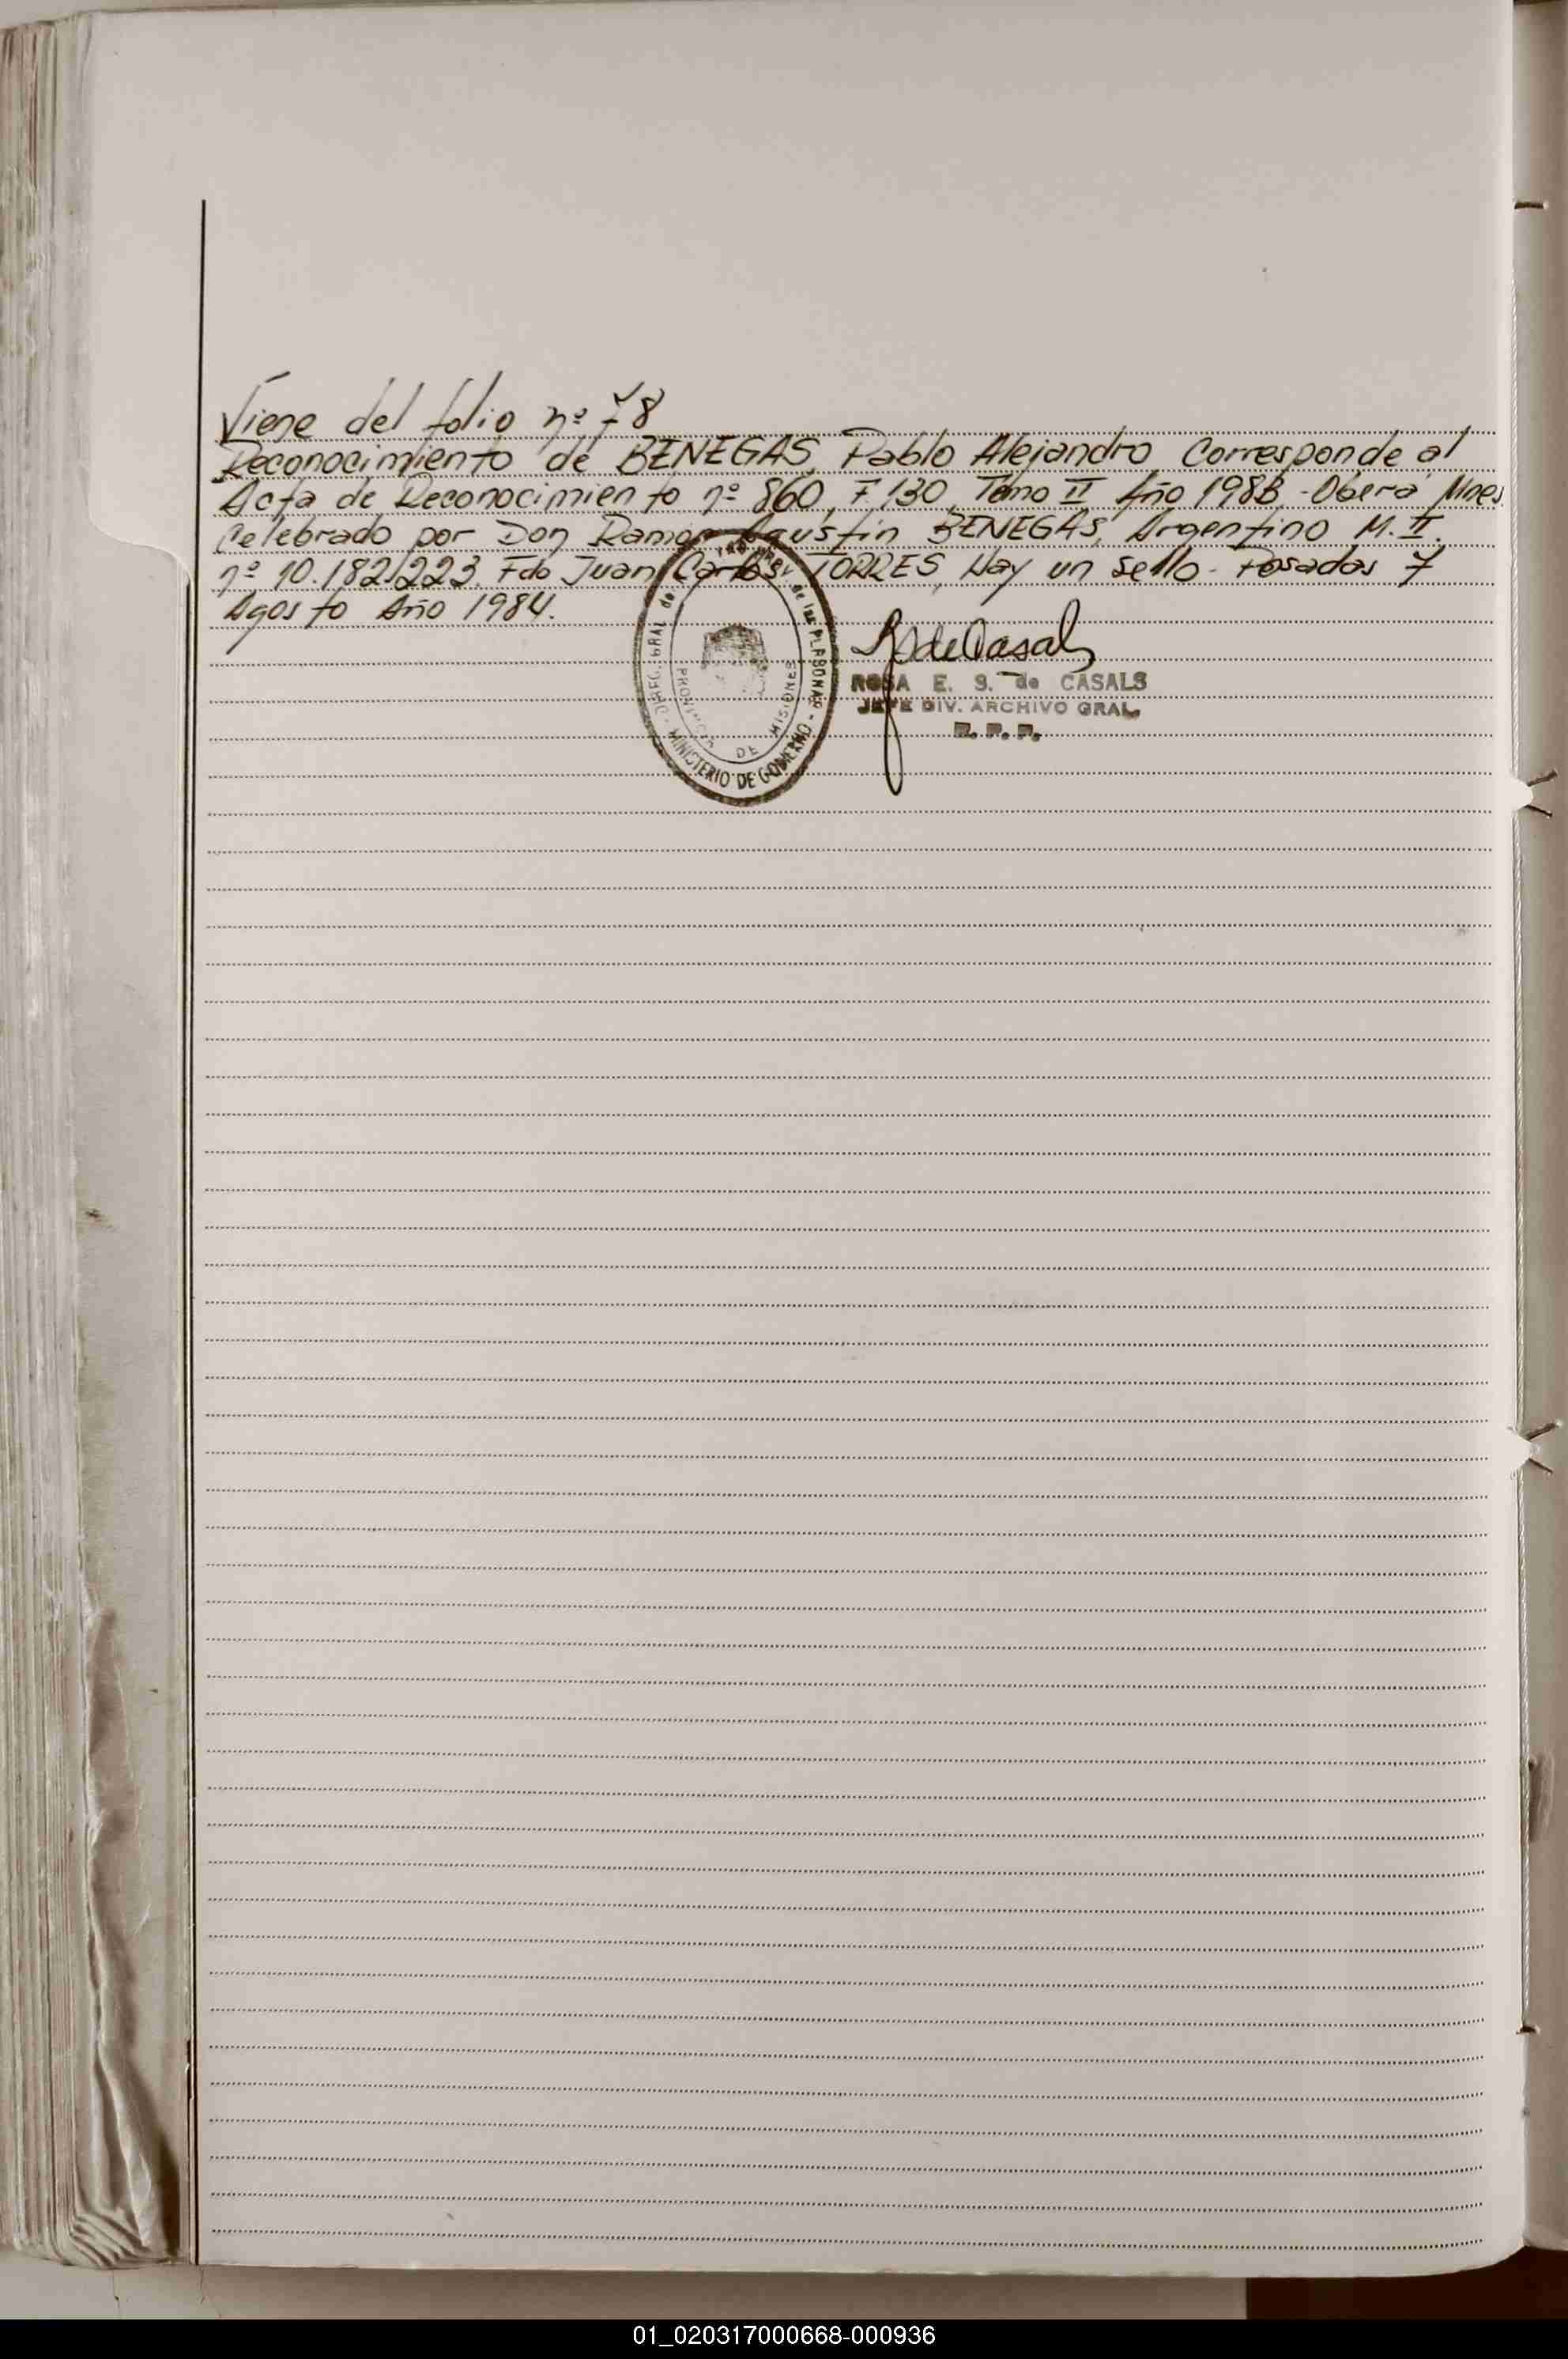 Viene del folio nº 78
Reconocimiento de BENEGAS, Pablo Alejandro Corresponde al
Acta de Reconocimiento nº 860, F 130, Tomo II Año 1983 - Oberá Mnes.
Celebrado por Don Ramon Agustin BENEGAS, Argentino M.I.
nº 10.182.223. Fdo Juan Carlos TORRES, Hay un sello - Posadas 7
Agosto Año 1984.
GRAL de
de las PERSONAS
PROVINCIA DE MISIONES
MINISTERIO DE GOBIERNO
ROSA E. S. de CASALS
JEFE DIV. ARCHIVO GRAL.
R. P. P.
01_020317000668-000936